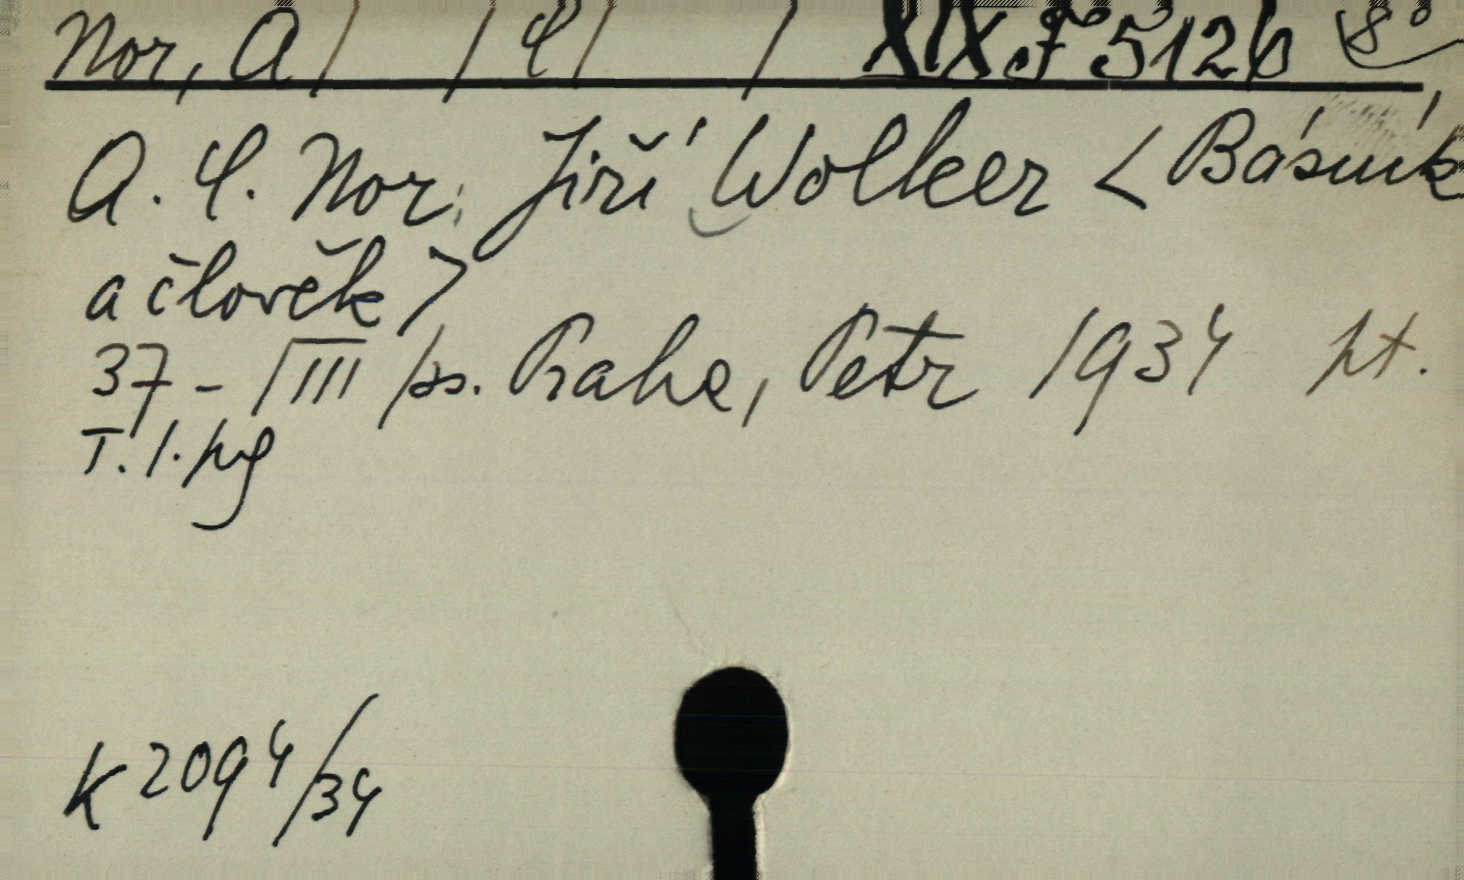 Nor, A/ /C/ / XIX J 5126 8°
A. C. Nor: Jiří Wolker < Básník
a člověk >
37 - |III| ps. Praha, Petr 1934 pt.
T. 1. pg
K 2094/34